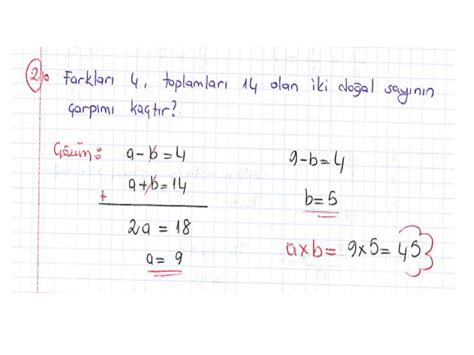 2. Farkları 4, toplamları 14 olan iki doğal sayının
çarpımı kaçtır?
Çözüm: a-b=4
a+b=14
+
2a = 18
a = 9
9-b=4
b=5
axb= 9x5= 45